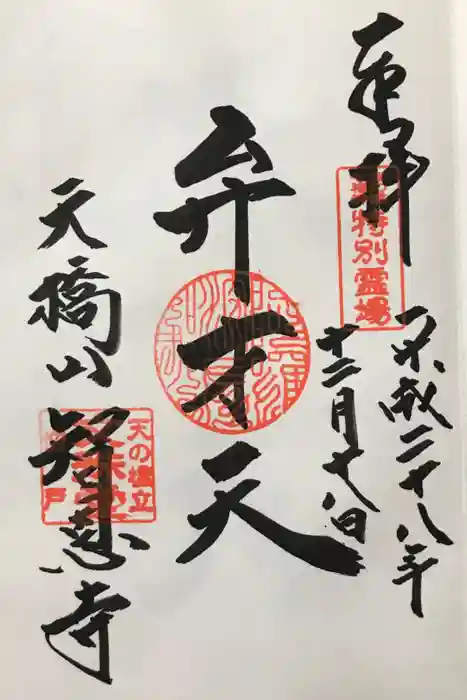 奉拝
特別霊場
平成二十八年
十二月十八日
弁才天
天橋山
智恩寺
天の橋立
文殊堂